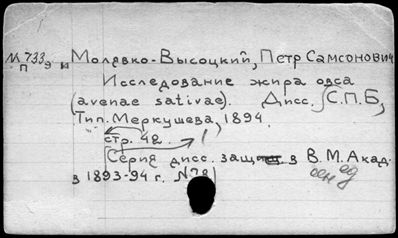 М 733 Молявко-Высоцкий, Петр Самсонович
П 9
Исследование жира овса
(avenae sativae). Дисс. С.П.Б,
Тип. Меркушева, 1894.
стр. 42.
Серия дисс. защ. в В.М.Акад.
в 1893-94 г. №78